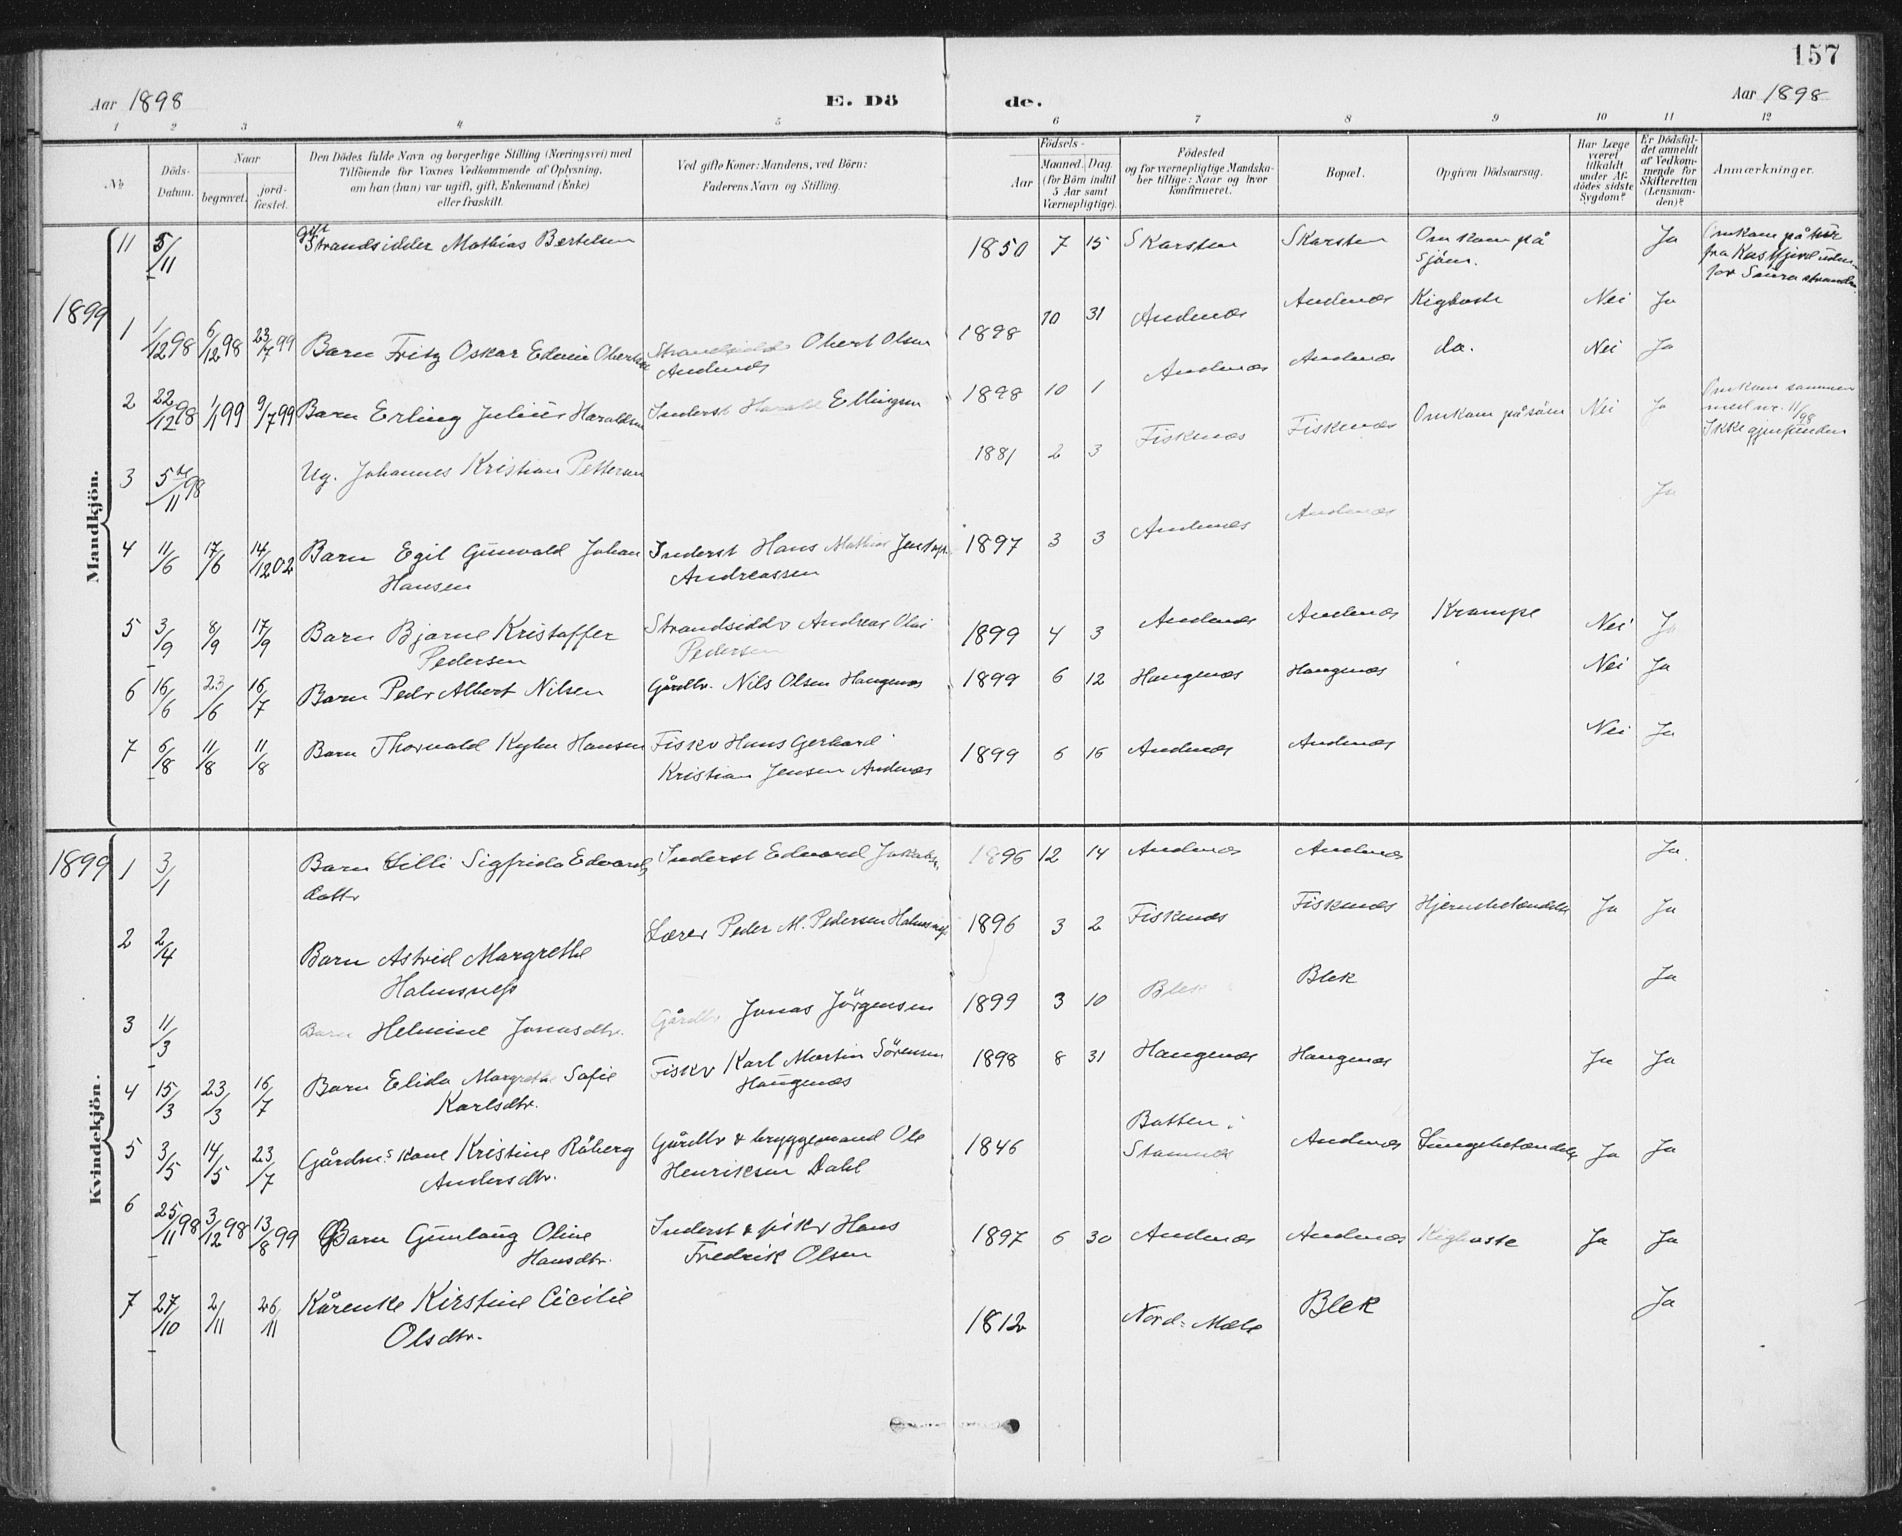 157
Aar 1898 E. Dö de. Aar 1898
1 2 3 4 5 6 7 8 9 10 11 12
No
Döds-Datum.
Naar
begravet.
jord-fæstet.
Den Dödes fulde Navn og borgerlige Stilling (Næringsvei) med
Tilföiende for Voxnes Vedkommende af Oplysning,
om han (hun) var ugift, gift, Enkemand (Enke)
eller fraskilt.
Ved gifte Koner: Mandens, ved Börn:
Faderens Navn og Stilling.
Födsels-
Aar
Maaned. Dag.
(for Börn indtil
5 Aar samt
Værnepligtige).
Födested
og for værnepligtige Mandska-
ber tillige: Naar og hvor
konfirmeret.
Bopæl.
Opgiven Dödsaarsag.
Har Læge
været
tilkaldt
under Af-
dödes sidste
Sygdom?
Er Dödsfal-
det anmeldt
af Vedkom-
mende for
Skifteretten
(Lensman-
den)?
Anmærkninger.
Mandkjön.
11 5/11 gift Strandsidder Mathias Bertelsen 1850 7 15 Skarsten Skarsten Omkom på Sjöen. Ja Omkom på tur
fra Kasfjord uden-
for
1899
1 1/12 98 6/12 98 23/7 99 Barn Fritz Oskar Edvin Strandsidder Obert Olsen
Andenæs 1898 10 31 Andenæs Andenæs Kighoste Nei Ja
2 22/12 98 1/1 99 9/7 99 Barn Erling Julius Haraldsen Inderst Harald Ellingsen 1898 10 1 Andenæs Andenæs do. Nei Ja
3 5te/11 98 Ug. Johannes Kristian Pettersen 1881 2 3 Fiskenæs Fiskenæs Omkom på söen Nei Ja Omkom sammen
med nr. 11/98
Ikke gjenfunden
4 11/6 17/6 14/12 02 Barn Egil Gunvald Johan
Hansen Inderst Hans Mathias
Andreassen 1897 3 3 Andenæs Andenæs Ja
5 3/9 8/9 17/9 Barn Bjarne Kristoffer
Pedersen Strandsidder Andreas
Pedersen 1899 4 3 Andenæs Andenæs Krampe Nei Ja
6 16/6 23/6 16/7 Barn Peder Albert Nilsen Gårdbr. Nils Olsen Haugenæs 1899 6 12 Haugenæs Haugenæs Nei Ja
7 6/8 11/8 11/8 Barn Thorvald Hansen Fisker Hans Gerhard
Kristian Jensen Andenæs 1899 6 16 Andenæs Andenæs Nei Ja
Kvindekjön.
1899
1 3/1 Barn Lilli Sigfrida Edvards
datter Inderst Edvard 1896 12 14 Andenæs Andenæs Ja
2 2/4 Barn Astrid Margrethe
Halmsness Lærer Peder M. Pedersen Halmsness 1896 3 2 Fiskenæs Fiskenæs Hjernebetændelse Ja Ja
3 11/3 Barn Helmine Jonasdtr. Gårdbr Jonas Jörgensen 1899 3 10 Blek Blek Ja
4 15/3 23/3 16/7 Barn Elida Margrethe Sofie
Karlsdtr. Fisker Karl Martin Sörensen
Haugenæs 1898 8 31 Haugenæs Haugenæs Ja Ja
5 3/5 14/5 23/7 Gårdms kone Kristine Råberg
Andersdtr. Gårdbr & bryggemand Ole
Henriksen Dahl 1846 Botten i
Stamnes Andenæs Lungebetændelse Ja Ja
6 25/11 98 3/12 98 13/8 99 Barn Gunlaug Oline
Hansdtr. Inderst & fisker Hans
Fredrik Olsen 1897 6 30 Andenæs Andenæs Kighoste Ja Ja
7 27/10 2/11 26/11 Kårenke Kirstine Cicilie
Olsdtr. 1812 Nord-Mele Blek Ja